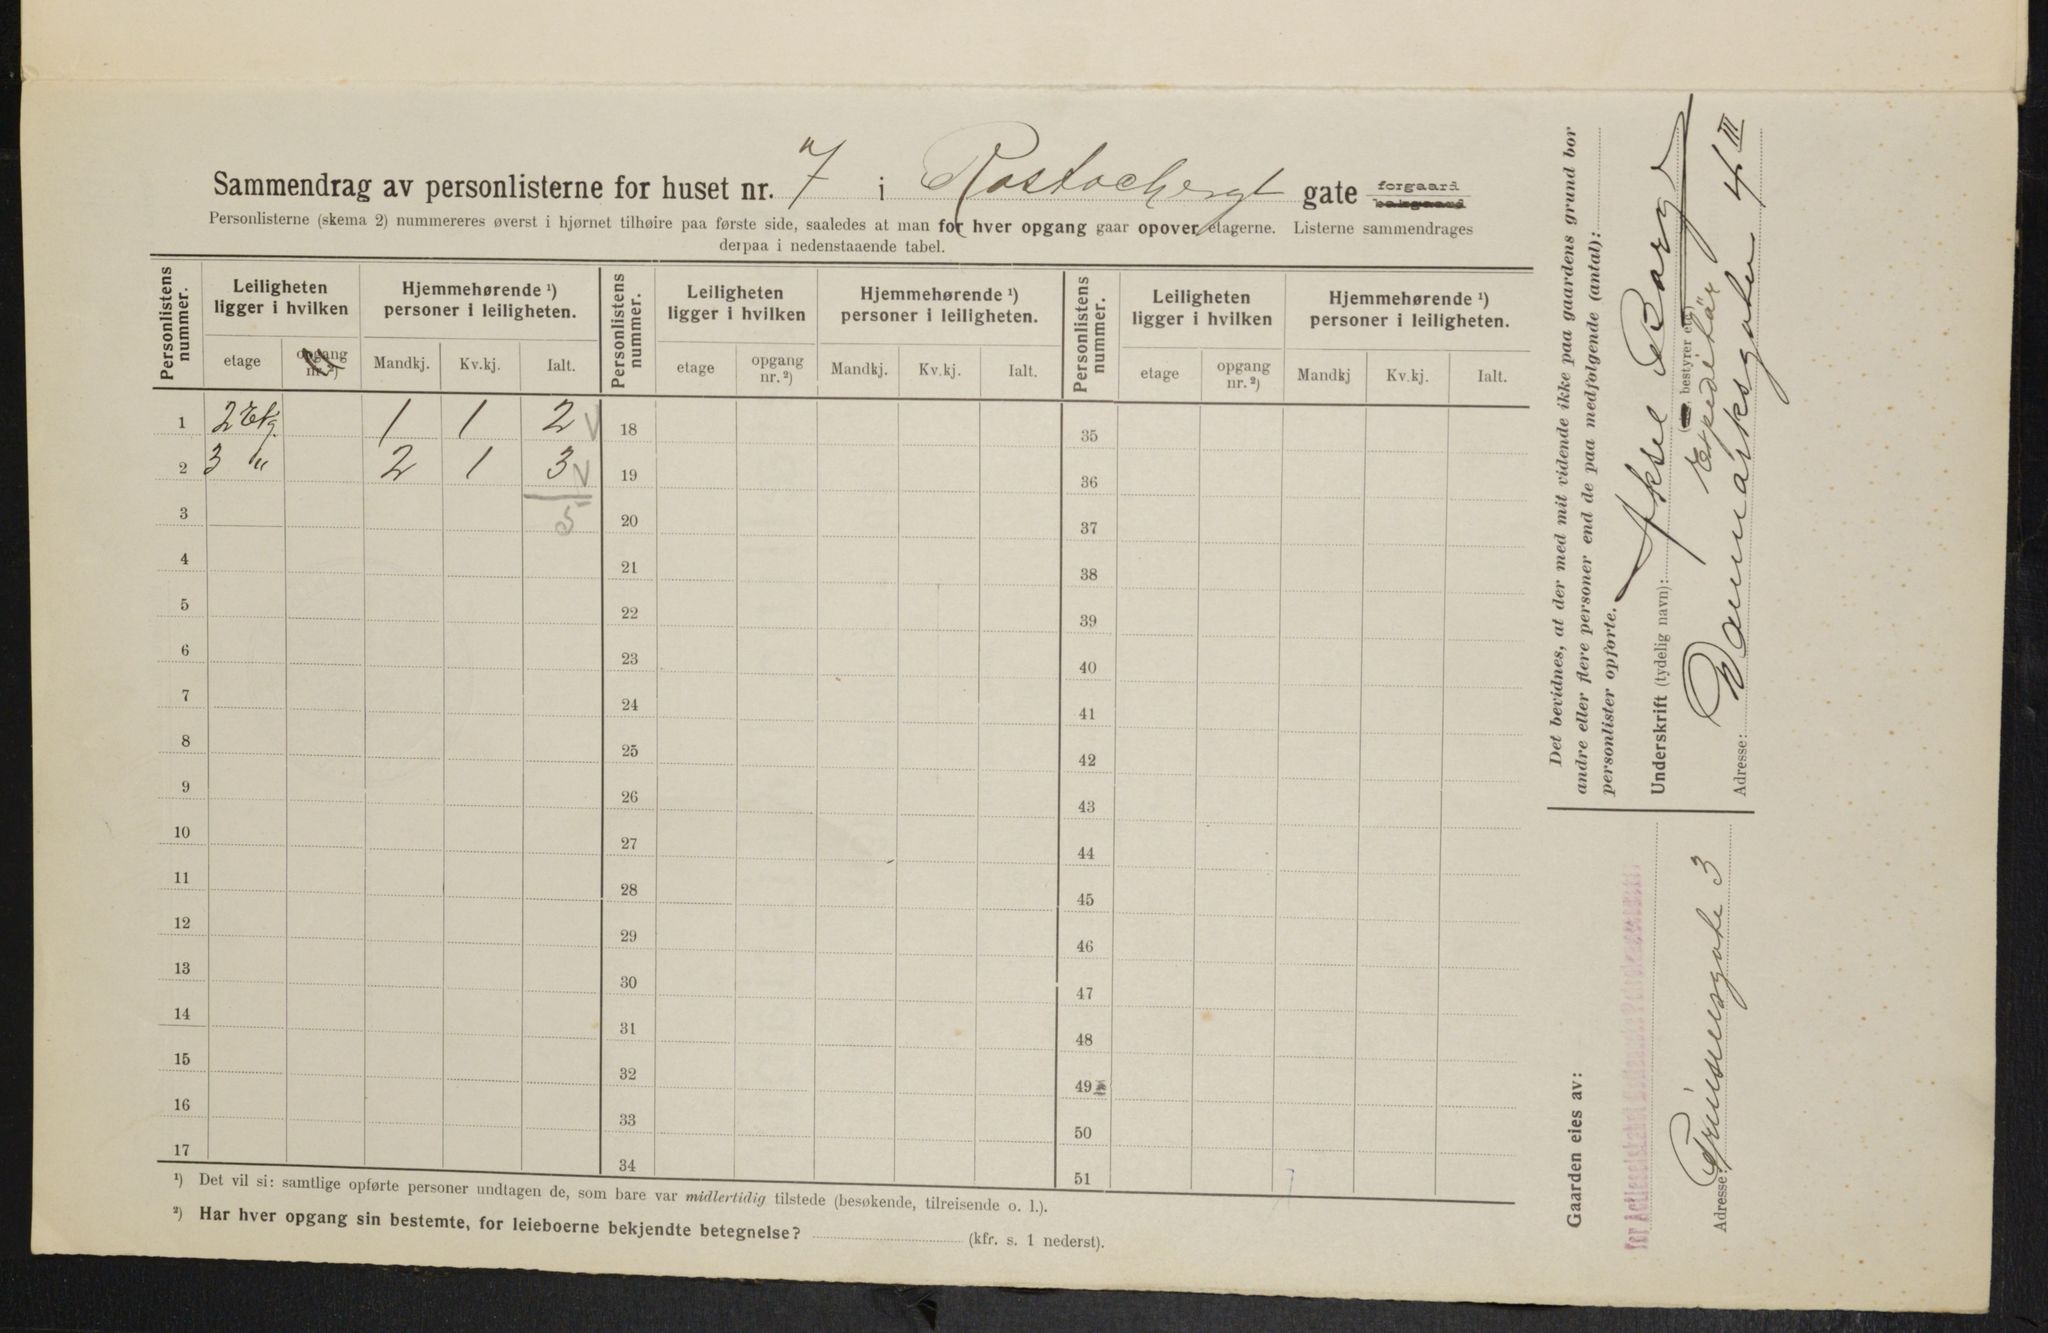 Sammendrag av personlisterne for huset nr. 7 i Rostochergt gate forgaard bakgaard
Personlisterne (skema 2) nummereres øverst i hjørnet tilhøire paa første side, saaledes at man for hver opgang gaar opover etagerne. Listerne sammendrages
derpaa i nedenstaaende tabel.
Personlistens nummer. Leiligheten ligger i hvilken Hjemmehørende ¹) personer i leiligheten. Personlistens nummer. Leiligheten ligger i hvilken Hjemmehørende ¹) personer i leiligheten. Personlistens nummer. Leiligheten ligger i hvilken Hjemmehørende ¹) personer i leiligheten.
etage opgang nr. ²) Mandkj. Kv.kj. Ialt. etage opgang nr. ²) Mandkj. Kv.kj. Ialt. etage opgang nr. ²) Mandkj Kv.kj. Ialt.
1 2 Etg. 1 1 2 V 18 35
2 3 " 2 1 3 V 19 36
3 5 20 37
4 21 38
5 22 39
6 23 40
7 24 41
8 25 42
9 26 43
10 27 44
11 28 45
12 29 46
13 30 47
14 31 48
15 32 49
16 33 50
17 34 51
¹) Det vil si: samtlige opførte personer undtagen de, som bare var midlertidig tilstede (besøkende, tilreisende o. l.).
²) Har hver opgang sin bestemte, for leieboerne bekjendte betegnelse? (kfr. s. 1 nederst).
Det bevidnes, at der med mit vidende ikke paa gaardens grund bor
andre eller flere personer end de paa medfølgende (antal):
personlister opførte.
Underskrift (tydelig navn): Aksel Borg
bestyrer etc.)
Expeditør
Adresse: Danmarksgaten 4 III
Gaarden eies av:
Adresse: Prinsensgate 3